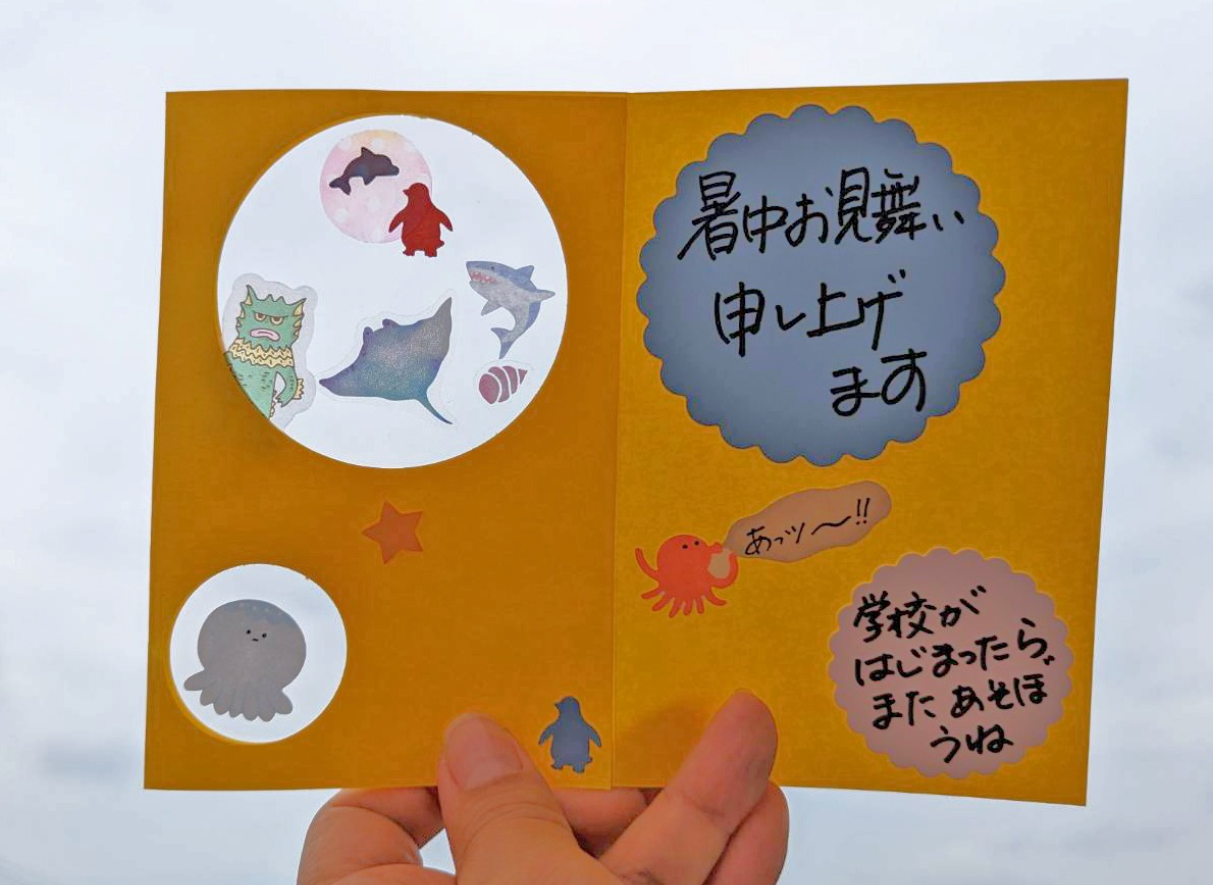 暑中お見舞い
申し上げ
ます
あっツ〜!!
学校が
はじまったら、
また あそぼ
うね